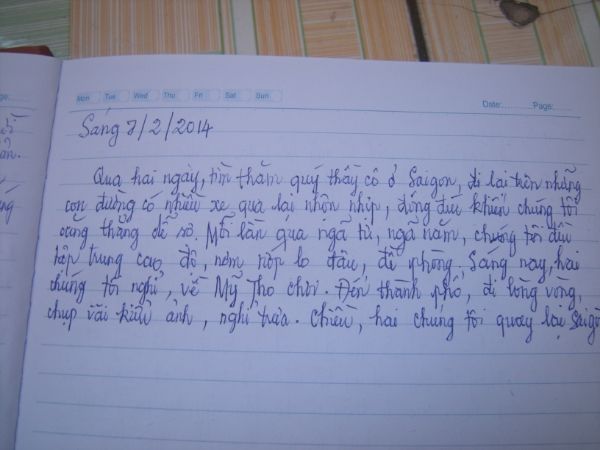 Mon Tue Wed Thu Fri Sat Sun
Date: Page:
Sáng 7/2/2014
Qua hai ngày, tìm thăm quý thầy cô ở Saigon, đi lại trên những
con đường có nhiều xe qua lại nhộn nhịp, đông đúc khiến chúng tôi
căng thẳng dễ sợ. Mỗi lần qua ngã tư, ngã năm, chúng tôi đều
tập trung cao độ, nơm nớp lo âu, đề phòng. Sáng nay, hai
chúng tôi nghỉ, về Mỹ Tho chơi. Đến thành phố, đi lòng vòng,
chụp vài kiểu ảnh, nghỉ trưa. Chiều, hai chúng tôi quay lại Saigo